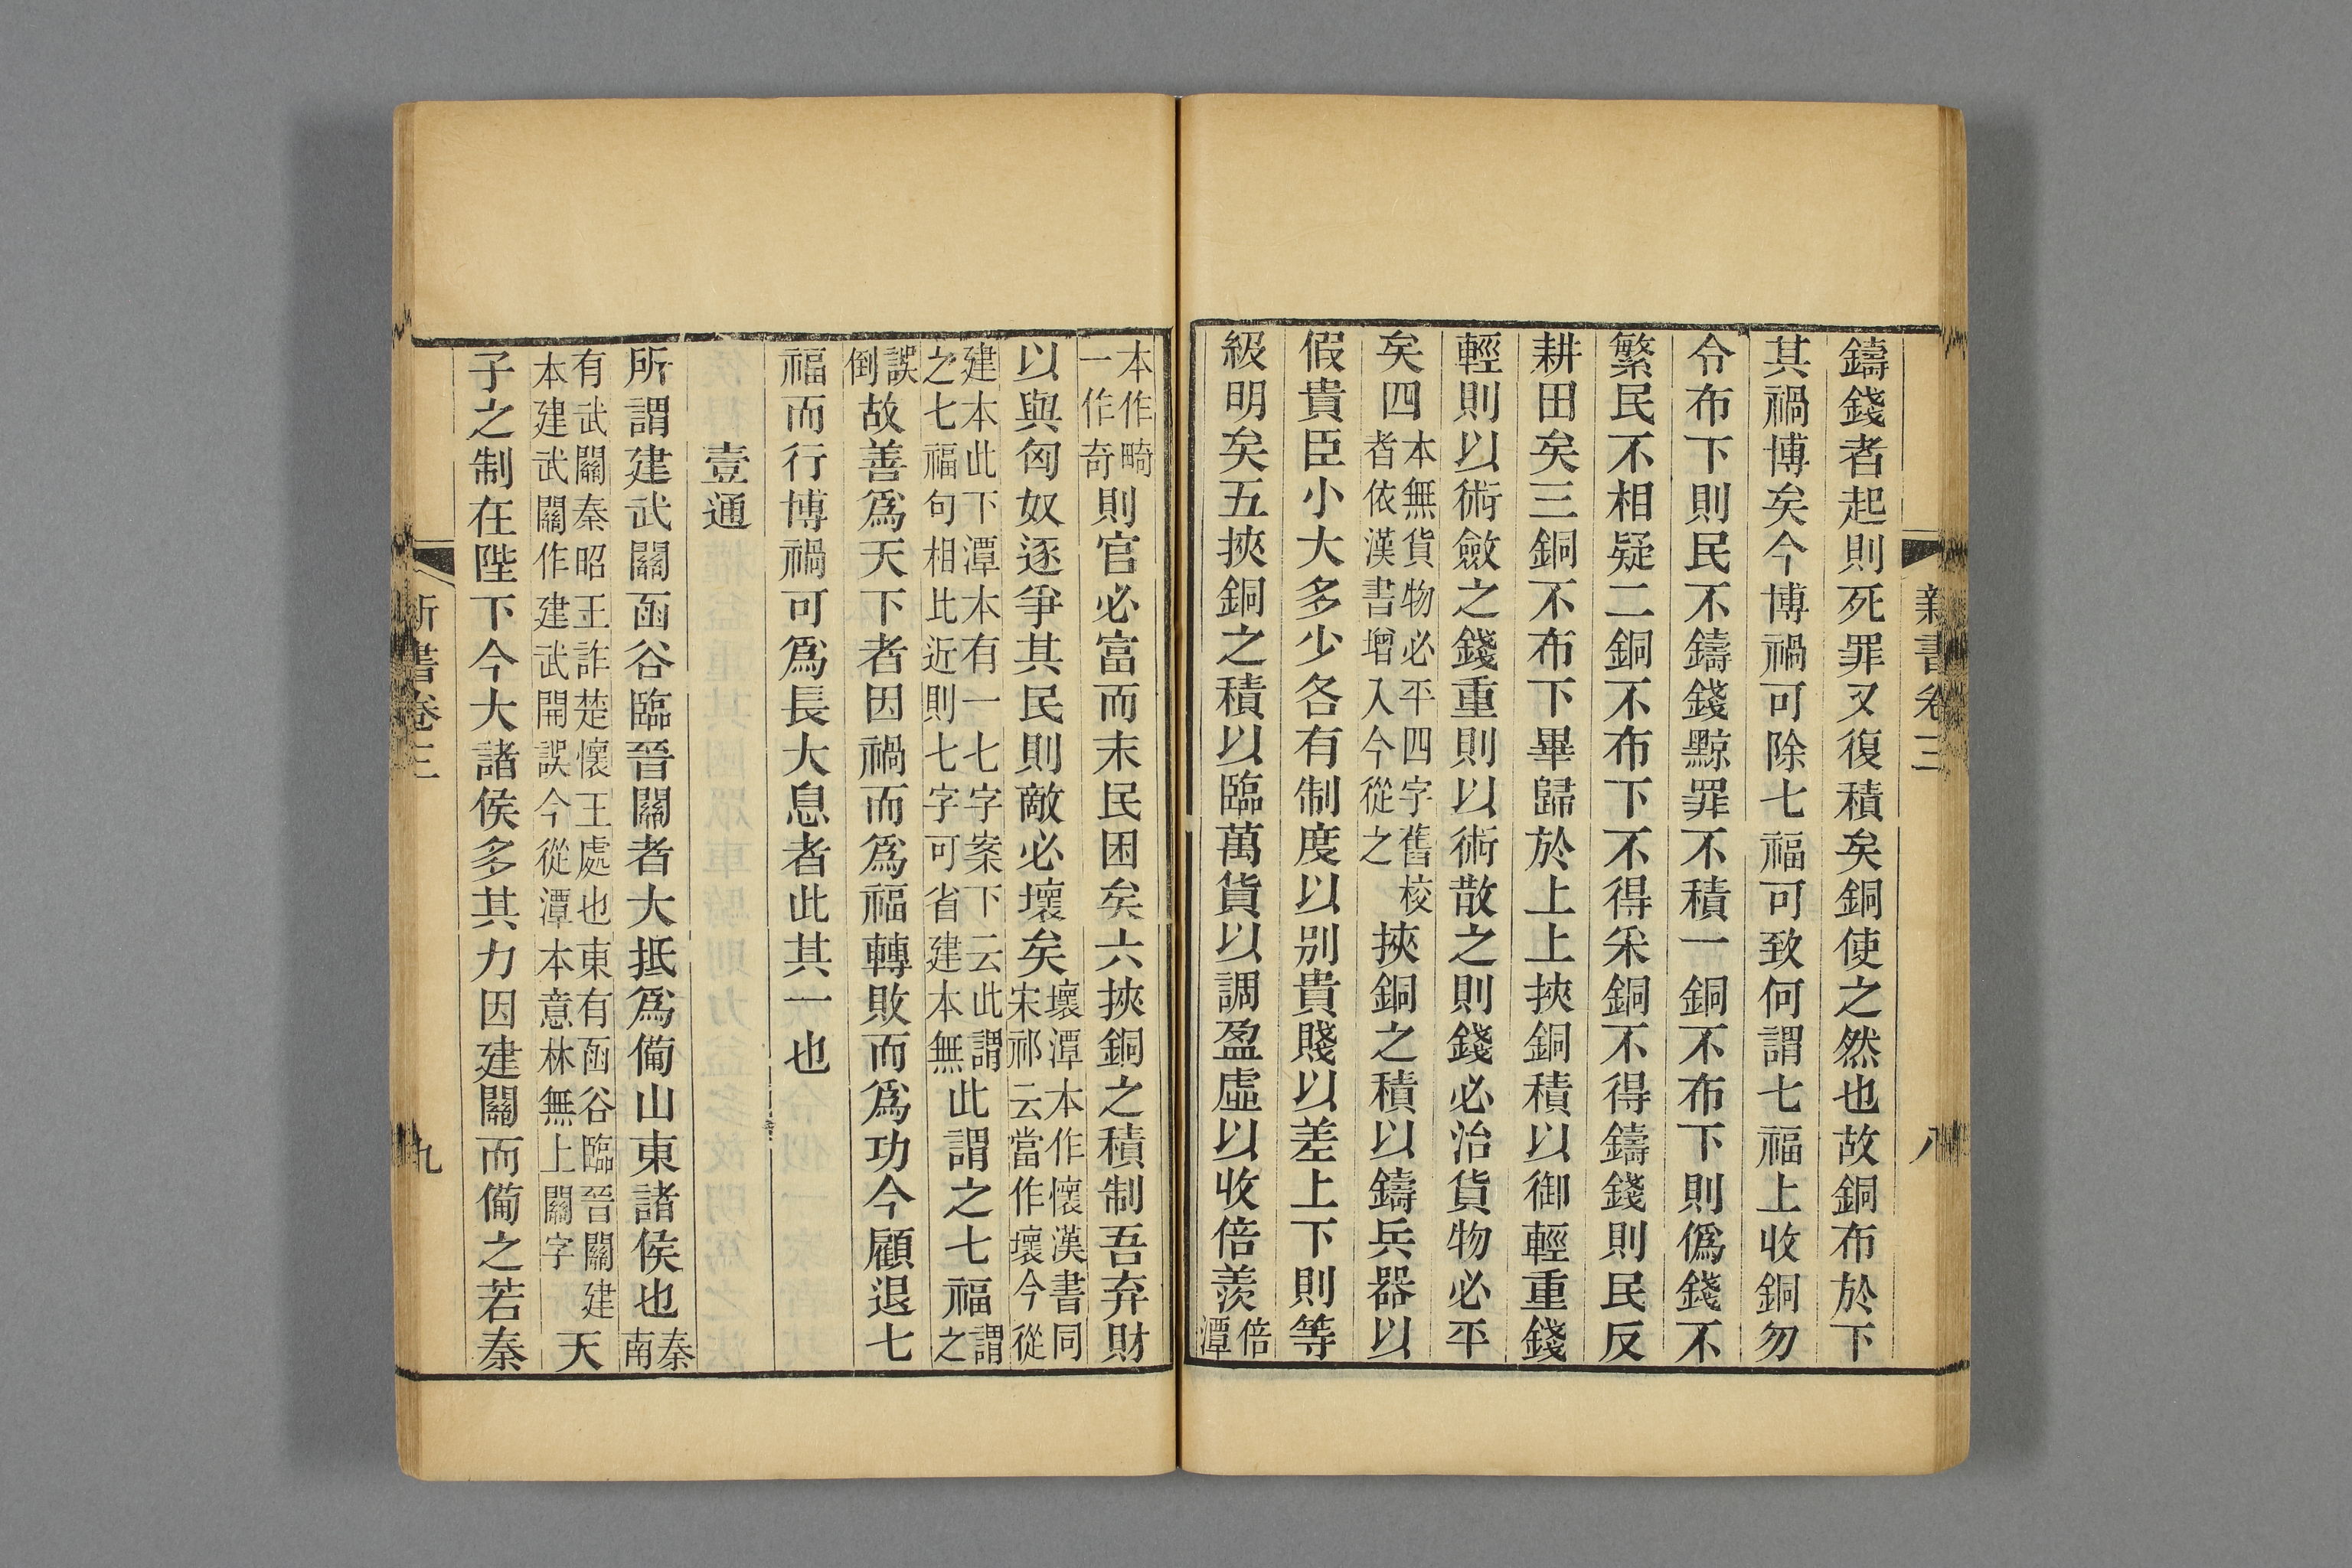 新書卷三
八
鑄錢者起則死罪又復積矣銅使之然也故銅布於下
其禍博矣今博禍可除七福可致何謂七福上收銅勿
令布下則民不鑄錢黥罪不積一銅不布下則僞錢不
繁民不相疑二銅不布下不得采銅不得鑄錢則民反
耕田矣三銅不布下畢歸於上上挾銅積以御輕重錢
輕則以術斂之錢重則以術散之則錢必治貨物必平
矣四本無貨物必平四字舊校者依漢書增入今從之挾銅之積以鑄兵器以
假貴臣小大多少各有制度以别貴賤以差上下則等
級明矣五挾銅之積以臨萬貨以調盈虛以收倍羨倍潭
本作畸一作奇則官必富而末民困矣六挾銅之積制吾弃財
以與匈奴逐爭其民則敵必壞矣壞潭本作懷漢書同宋祁云當作壞今從
建本此下潭本有一七字案下云此謂之七福句相比近則七字可省建本無此謂之七福謂之
誤倒故善爲天下者因禍而爲福轉敗而爲功今顧退七
福而行博禍可爲長大息者此其一也
壹通
所謂建武關函谷臨晉關者大抵爲備山東諸侯也秦南
有武關秦昭王詐楚懷王處也東有函谷臨晉關建本建武關作建武開誤今從潭本意林無上關字天
子之制在陛下今大諸侯多其力因建關而備之若秦
新書卷三
九